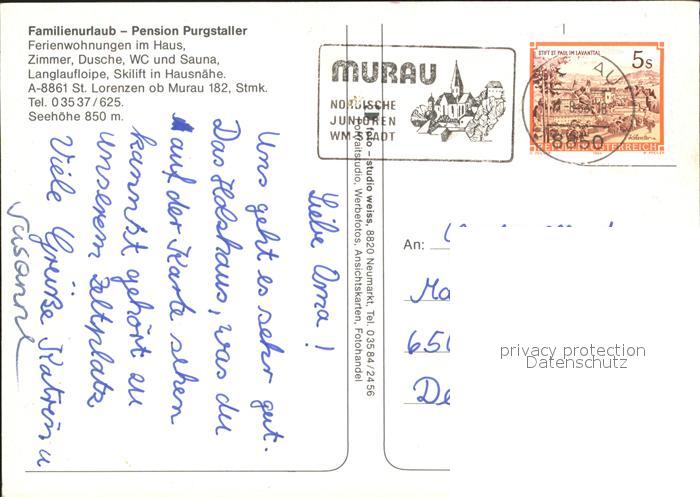 Familienurlaub – Pension Purgstaller
Ferienwohnungen im Haus,
Zimmer, Dusche, WC und Sauna,
Langlaufloipe, Skilift in Hausnähe.
A-8861 St. Lorenzen ob Murau 182, Stmk.
Tel. 0 35 37 / 625.
Seehöhe 850 m.
MURAU
NORDISCHE
JUNIOREN
WM-STADT
STIFT ST. PAUL IM LAVANTTAL
5 S
8850
Liebe Oma!
Uns geht es sehr gut.
Das Holzhaus, was du
auf der Karte sehen
kannst gehört zu
unserem Zeltplatz
Viele Grüße Katrin u
Susanne
foto - studio weiss, 8820 Neumarkt, Tel. 0 35 84 / 24 56
Portraitstudio, Werbefotos, Ansichtskarten, Fotohandel
An:
privacy protection
Datenschutz